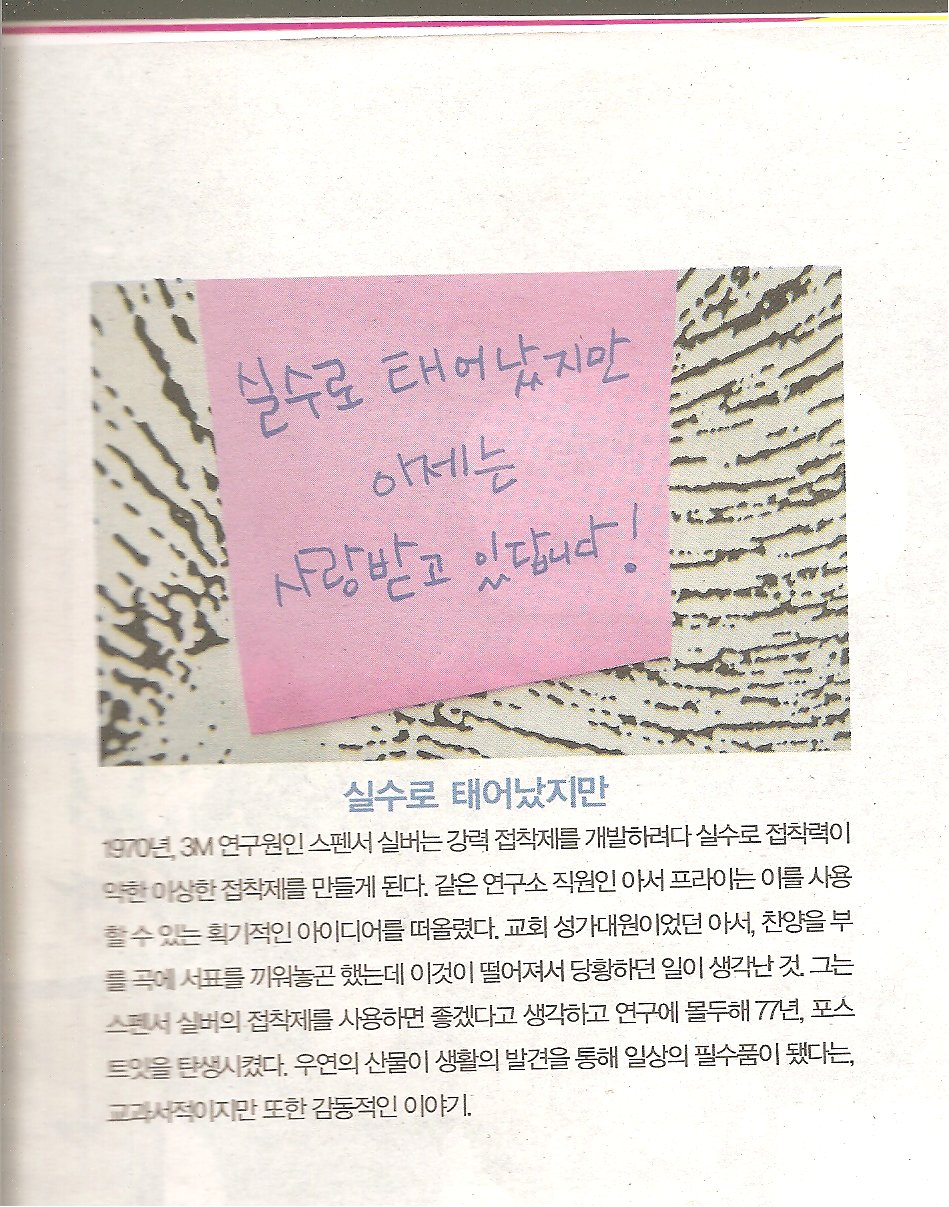 실수로 태어났지만
이제는
사랑받고 있답니다!
실수로 태어났지만
1970년, 3M 연구원인 스펜서 실버는 강력 접착제를 개발하려다 실수로 접착력이
약한 이상한 접착제를 만들게 된다. 같은 연구소 직원인 아서 프라이는 이를 사용
할 수 있는 획기적인 아이디어를 떠올렸다. 교회 성가대원이었던 아서, 찬양을 부
를 곡에 서표를 끼워놓곤 했는데 이것이 떨어져서 당황하던 일이 생각난 것. 그는
스펜서 실버의 접착제를 사용하면 좋겠다고 생각하고 연구에 몰두해 77년, 포스
트잇을 탄생시켰다. 우연의 산물이 생활의 발견을 통해 일상의 필수품이 됐다는,
교과서적이지만 또한 감동적인 이야기.